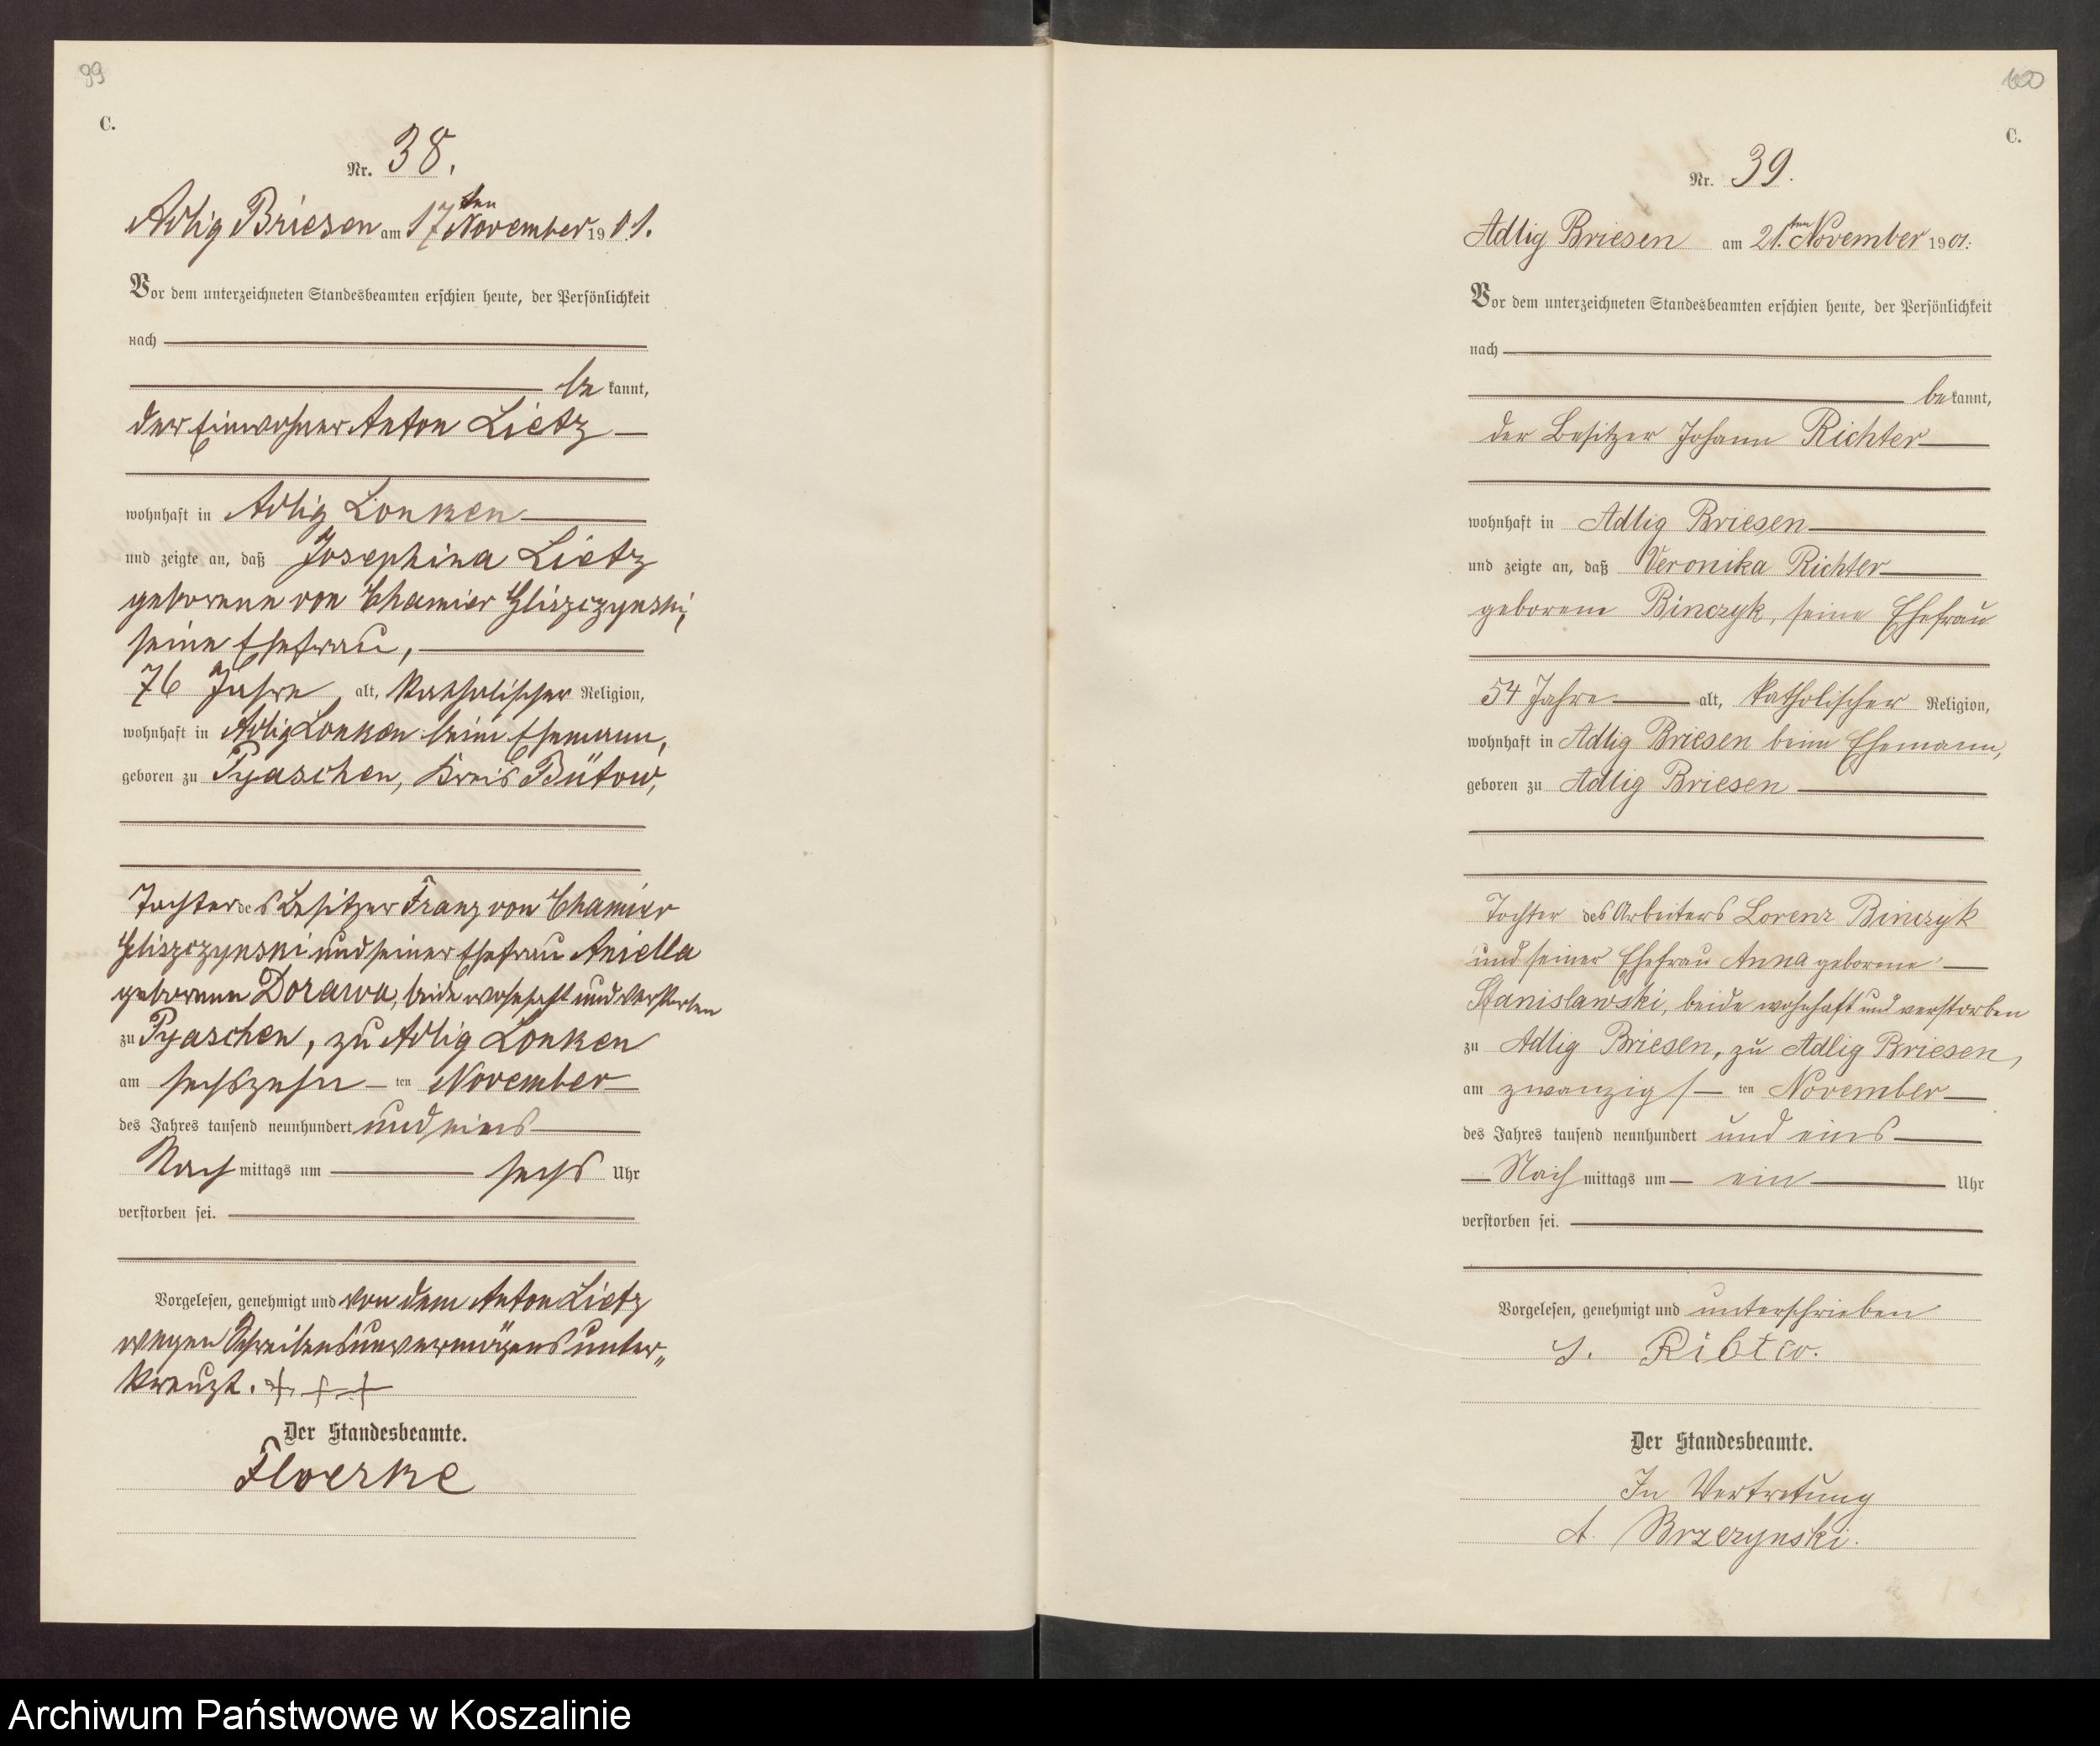 99
C.
Nr. 38.
Adlig Briesen am 17ten November 1901.
Vor dem unterzeichneten Standesbeamten erschien heute, der Persönlichkeit
nach
be kannt,
der Einwohner Anton Lietz
wohnhaft in Adlig Lonken
und zeigte an, daß Josephina Lietz
geborene von Chamier Gliszczynski,
seine Ehefrau,
76 Jahre alt, katholischer Religion,
wohnhaft in Adlig Lonken beim Ehemann,
geboren zu Pyaschen, Kreis Bütow,
Tochter des Besitzer Franz von Chamier
Gliszczynski und seiner Ehefrau Aniella
geborene Dorawa, beide wohnhaft und verstorben
zu Pyaschen, zu Adlig Lonken
am sechszehn ten November
des Jahres tausend neunhundert und eins
Nach mittags um sechs Uhr
verstorben sei.
Vorgelesen, genehmigt und von dem Anton Lietz
wegen Schreibensunvermögens unter„
kreuzt. + + +
Der Standesbeamte.
Floerke
100
C.
Nr. 39.
Adlig Briesen am 21.ten November 1901.
Vor dem unterzeichneten Standesbeamten erschien heute, der Persönlichkeit
nach
be kannt,
der Besitzer Johann Richter
wohnhaft in Adlig Briesen
und zeigte an, daß Veronika Richter
geborene Binczyk, seine Ehefrau
54 Jahre alt, katholischer Religion,
wohnhaft in Adlig Briesen beim Ehemann,
geboren zu Adlig Briesen
Tochter des Arbeiters Lorenz Binczyk
und seiner Ehefrau Anna geborene
Stanislawski, beide wohnhaft und verstorben
zu Adlig Briesen, zu Adlig Briesen,
am zwanzigs ten November
des Jahres tausend neunhundert und eins
Nach mittags um ein Uhr
verstorben sei.
Vorgelesen, genehmigt und unterschrieben
J.
Der Standesbeamte.
In Vertretung
A. Brzezynski.
Archiwum Państwowe w Koszalinie